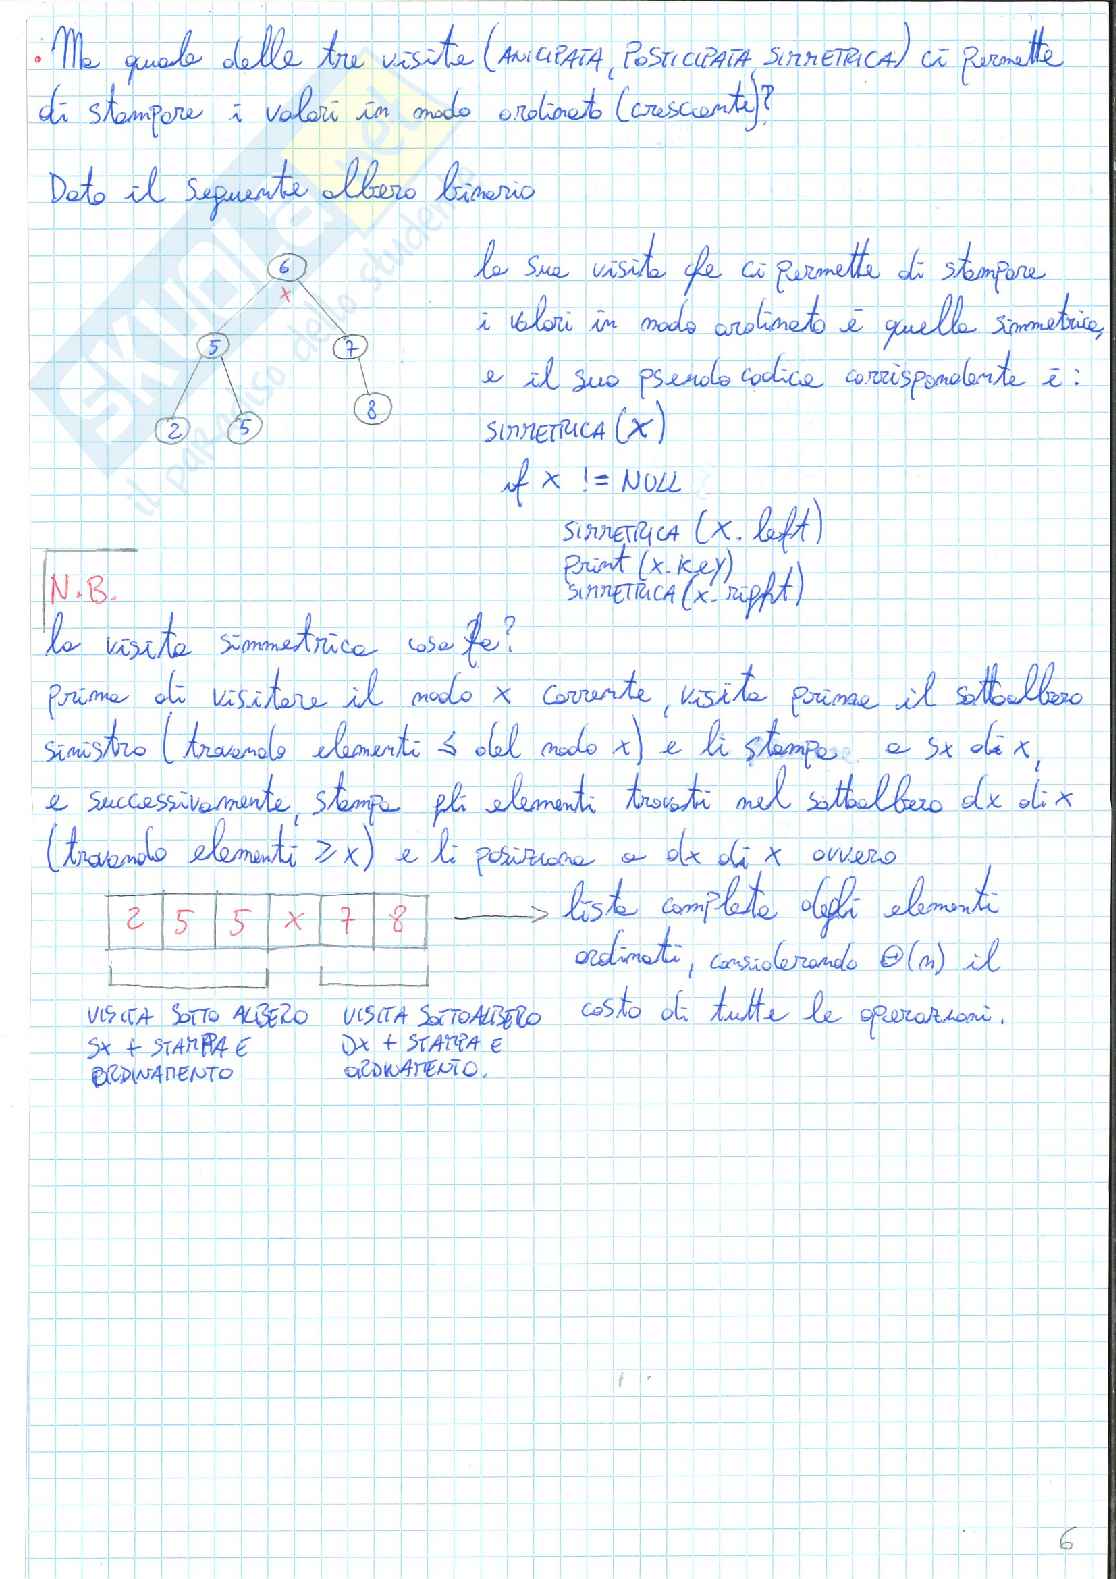 • Ma quale delle tre visite (ANICIPATA, POSTICIPATA, SIMMETRICA) ci permette
di stampare i valori in modo ordinato (crescente)?
Dato il seguente albero binario
6
x
5
7
2
5
8
la sua visita che ci permette di stampare
i valori in modo ordinato è quella simmetrica,
e il suo pseudo codice corrispondente è:
SIMMETRICA (X)
if x != NULL
SIMMETRICA (x.left)
print (x.key)
SIMMETRICA (x.right)
N.B.
la visita simmetrica cosa fa?
prima di visitare il nodo x corrente, visita prima il sottoalbero
sinistro (trovando elementi ≤ del nodo x) e li stampa a sx di x,
e successivamente, stampa gli elementi trovati nel sottoalbero dx di x
(trovando elementi ≥ x) e li posiziona a dx di x ovvero
2 5 5 x 7 8
lista completa degli elementi
ordinati, considerando Θ(n) il
costo di tutte le operazioni.
VISITA SOTTO ALBERO
SX + STAMPA E
ORDINAMENTO
VISITA SOTTOALBERO
DX + STAMPA E
ORDINAMENTO.
6
SKUOLA.net
il paradiso dello studente